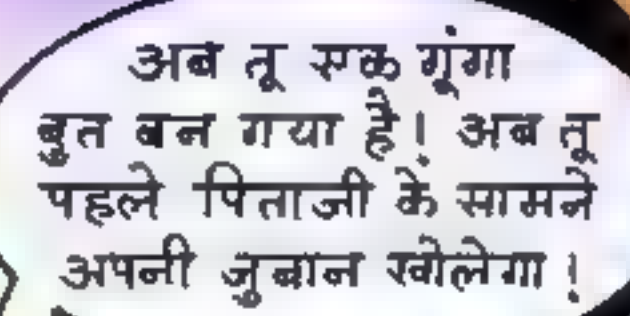 अब तू एक गूंगा
बुत बन गया है! अब तू
पहले पिताजी के सामने
अपनी जुबान खोलेगा!